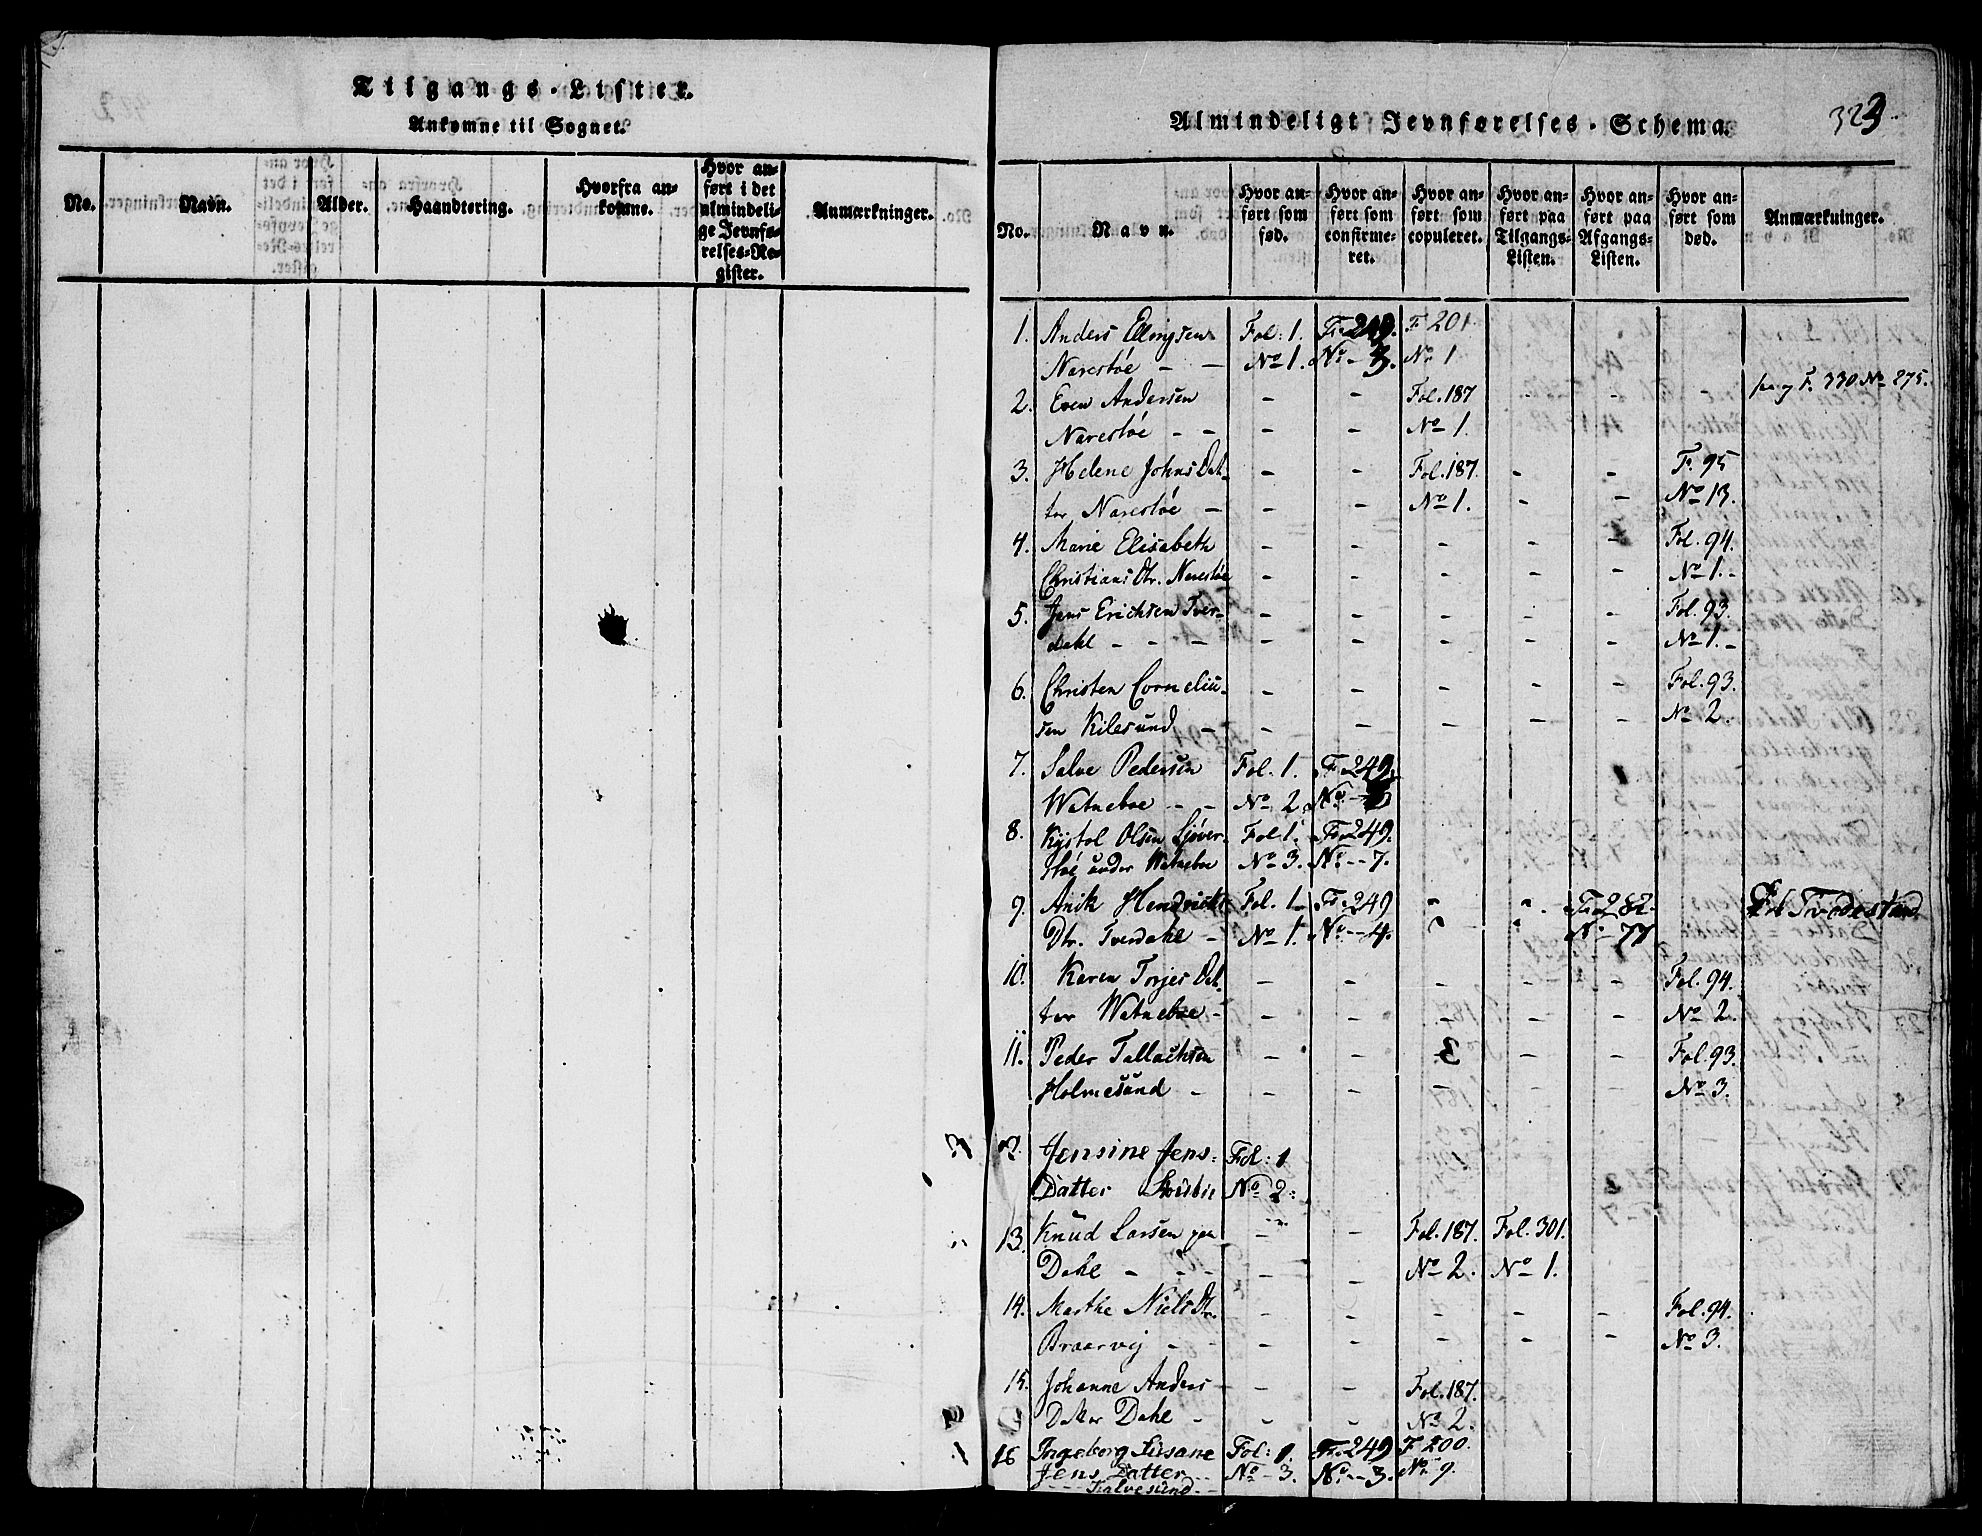 Tilgangs-Lister.
Ankomne til Sognet.
No.
Navn.
Alder.
Haandtering.
Hvorfra an-
komne.
Hvor an-
ført i det
almindeli-
ge Jevnfø-
relses-Re-
gister.
Anmærkninger.
Almindeligt Jevnførelses-Schema.
323.
No.
Navn.
Hvor an-
ført som
fød.
Hvor an-
ført som
confirme-
ret.
Hvor an-
ført som
copuleret.
Hvor an-
ført paa
Tilgangs-
Listen.
Hvor an-
ført paa
Afgangs-
Listen.
Hvor an-
ført som
død.
Anmærkninger.
1. Anders Ellingsen Fol: 1. F. 249. F 201
Narestøe - - No 1. No - 3. No 1
2. Even Andersen - - Fol. 187 - - - F. 330 No 275.
Narestøe - - - - No 1.
3. Helene Johns Dat- - - Fol. 187. - - F. 95
ter Narestøe - - - No 1. - - No 13.
4. Marie Elisabeth - - - - - Fol. 94.
Christians Dtr. Narestøe - - - - - No 1. -
5. Jens Erichsen Tver- - - - - - Fol. 93.
dahl - - - - - - - - No 1. -
6. Christen Corneliu- - - - - - Fol. 93.
sen Kilesund - - - - - - No 2.
7. Salve Pedersen Fol. 1. F. 249.
Watneboe - - No 2. No -
8. Kystol Olsen Sjøver- Fol. 1. F. 249.
støe under Watneboe No 3. No - - 7.
9. Anik Hendricks Fol. 1 - F. 249 - - F. 282. Tvedestrand
Dtr. Tverdahl - No 1. No - - 4. - - No - 77
10. Karen Torjes Dat- - - - - - Fol. 94.
ter Watneboe - - - - - - No 2.
11. Peder Tallachsen - - - - Fol. 93.
Holmesund - - - - - - No 3.
12. Jensine Jens: Fol: 1
Datter No 2:
13. Knud Larsen paa - - Fol. 187. Fol. 301.
Dahl - - - - - No 2. No 1.
14. Marthe Niels Dtr. - - - - - Fol. 94.
Braarvig - - - - - - - No 3.
15. Johanne Anders - - - Fol. 187.
Datter Dahl - - - No 2.
16 Ingeborg Susane Fol: 1. F. 249 F 200.
Jens Datter - - No - 3. No - - 3. No 9.